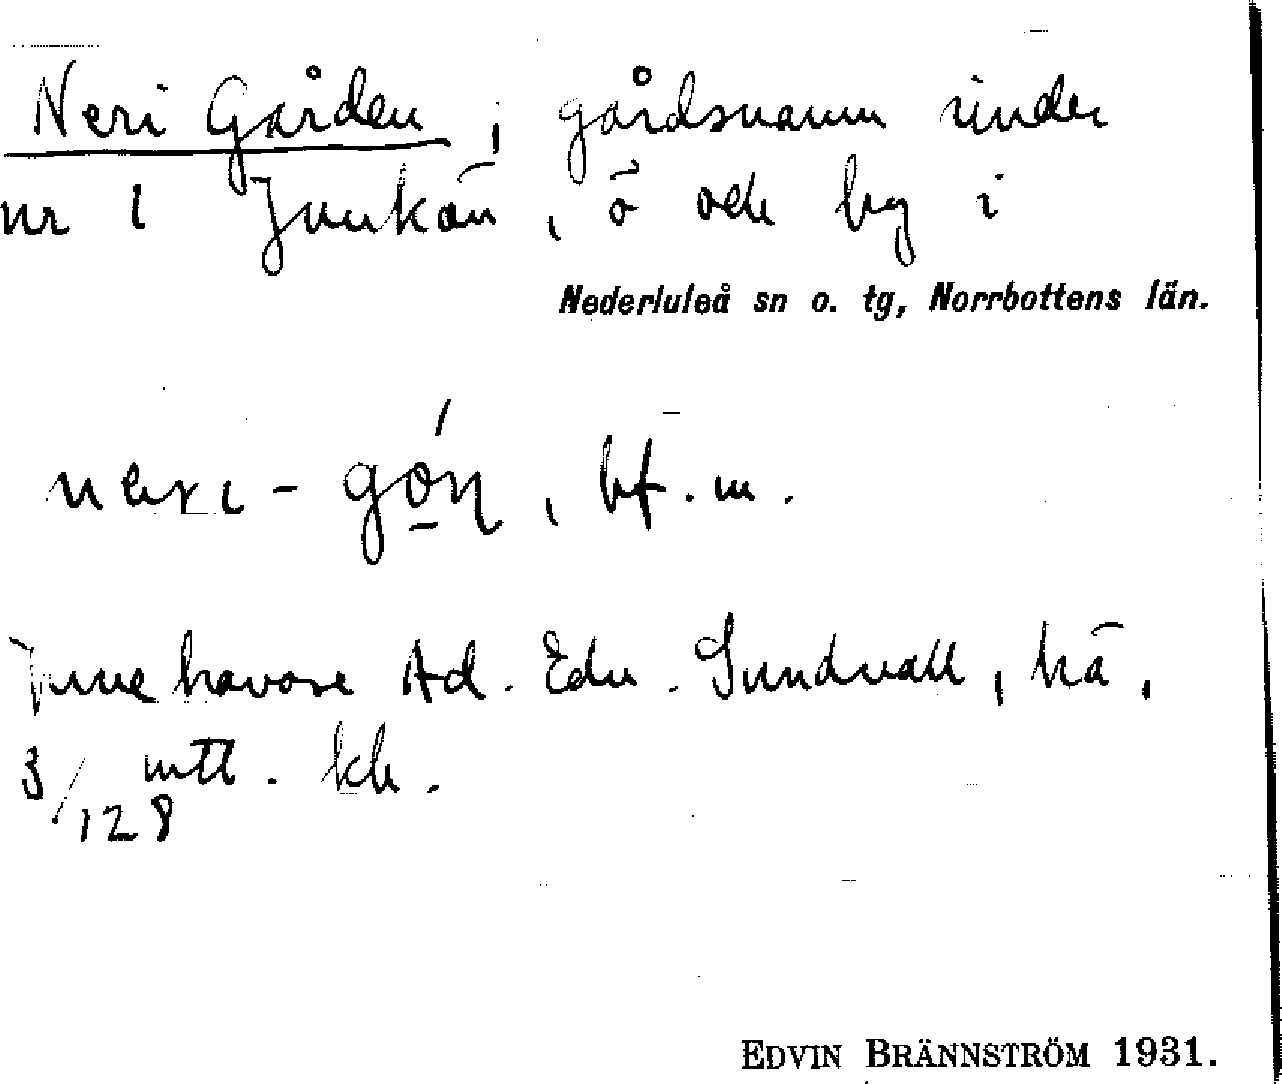 Neri Gården, gårdsnamn under
nr 1 Junkön, ö och by i
Nederluleå sn o. tg, Norrbottens län.
neri-gó̠ɳ, bf. m.
Innehavare Ad. Edv. Sundvall, hä,
3/128 mtl. kr.
EDVIN BRÄNNSTRÖM 1931.